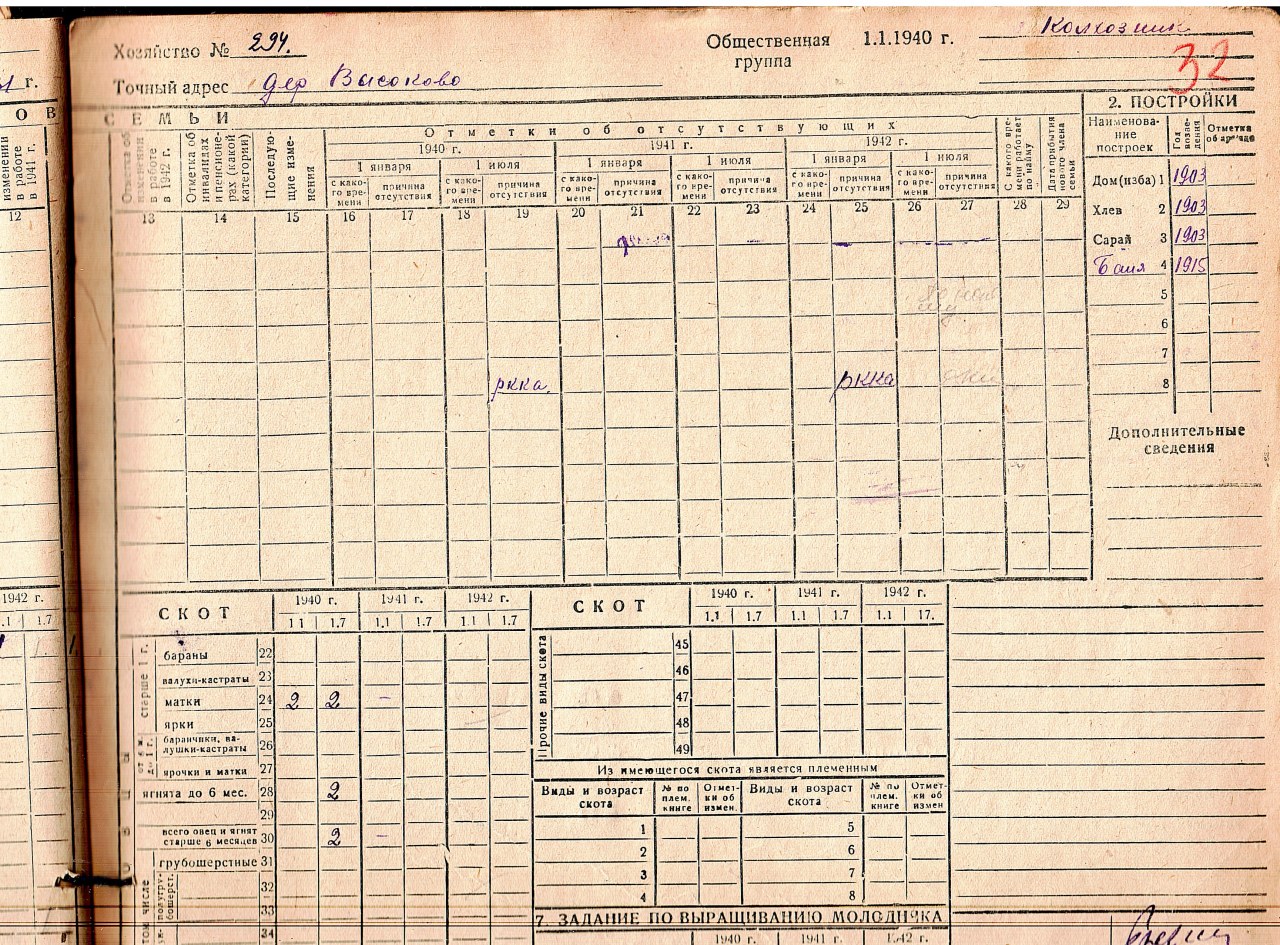 Хозяйство № 294.
Общественная группа 1.1.1940 г. Колхозник
32
Точный адрес дер Высоково
г.
О В
С Е М Ь И
2. ПОСТРОЙКИ
изменении в работе в 1941 г.
Отметка об изменении в работе в 1942 г.
Отметка об инвалидах и пенсионерах (какой категории)
Последующие изменения
Отметки об отсутствующих
1940 г. 1941 г. 1942 г.
1 января 1 июля 1 января 1 июля 1 января 1 июля
с какого времени причина отсутствия с какого времени причина отсутствия с какого времени причина отсутствия с какого времени причина отсутствия с какого времени причина отсутствия с какого времени причина отсутствия
С какого времени работает по найму
Дата прибытия нового члена семьи
Наименование построек Год возведения Отметка об аренде
12 13 14 15 16 17 18 19 20 21 22 23 24 25 26 27 28 29
Дом(изба) 1 1903
Хлев 2 1903
Сарай 3 1903
Баня 4 1915
5
6
7
8
ркка ркка
Дополнительные сведения
1942 г.
1.1 1.7
СКОТ 1940 г. 1941 г. 1942 г.
1 1 1.7 1.1 1.7 1.1 1.7
старше 1 г.
бараны 22
валухи-кастраты 23
матки 24 2 2 -
ярки 25
баранчики, валушки-кастраты 26
ярочки и матки 27
ягнята до 6 мес. 28 2
29
всего овец и ягнят старше 6 месяцев 30 2 -
том числе
грубошерстные 31
32
33
34
СКОТ 1940 г. 1941 г. 1942 г.
1.1 1.7 1.1 1.7 1.1 17.
Прочие виды скота
45
46
47
48
49
Из имеющегося скота является племенным
Виды и возраст скота № по плем. книге Отметки об измен. Виды и возраст скота № по плем. книге Отметки об измен
1 5
2 6
3 7
4 8
7. ЗАДАНИЕ ПО ВЫРАЩИВАНИЮ МОЛОДНЯКА
1940 г. 1941 г. 1942 г.